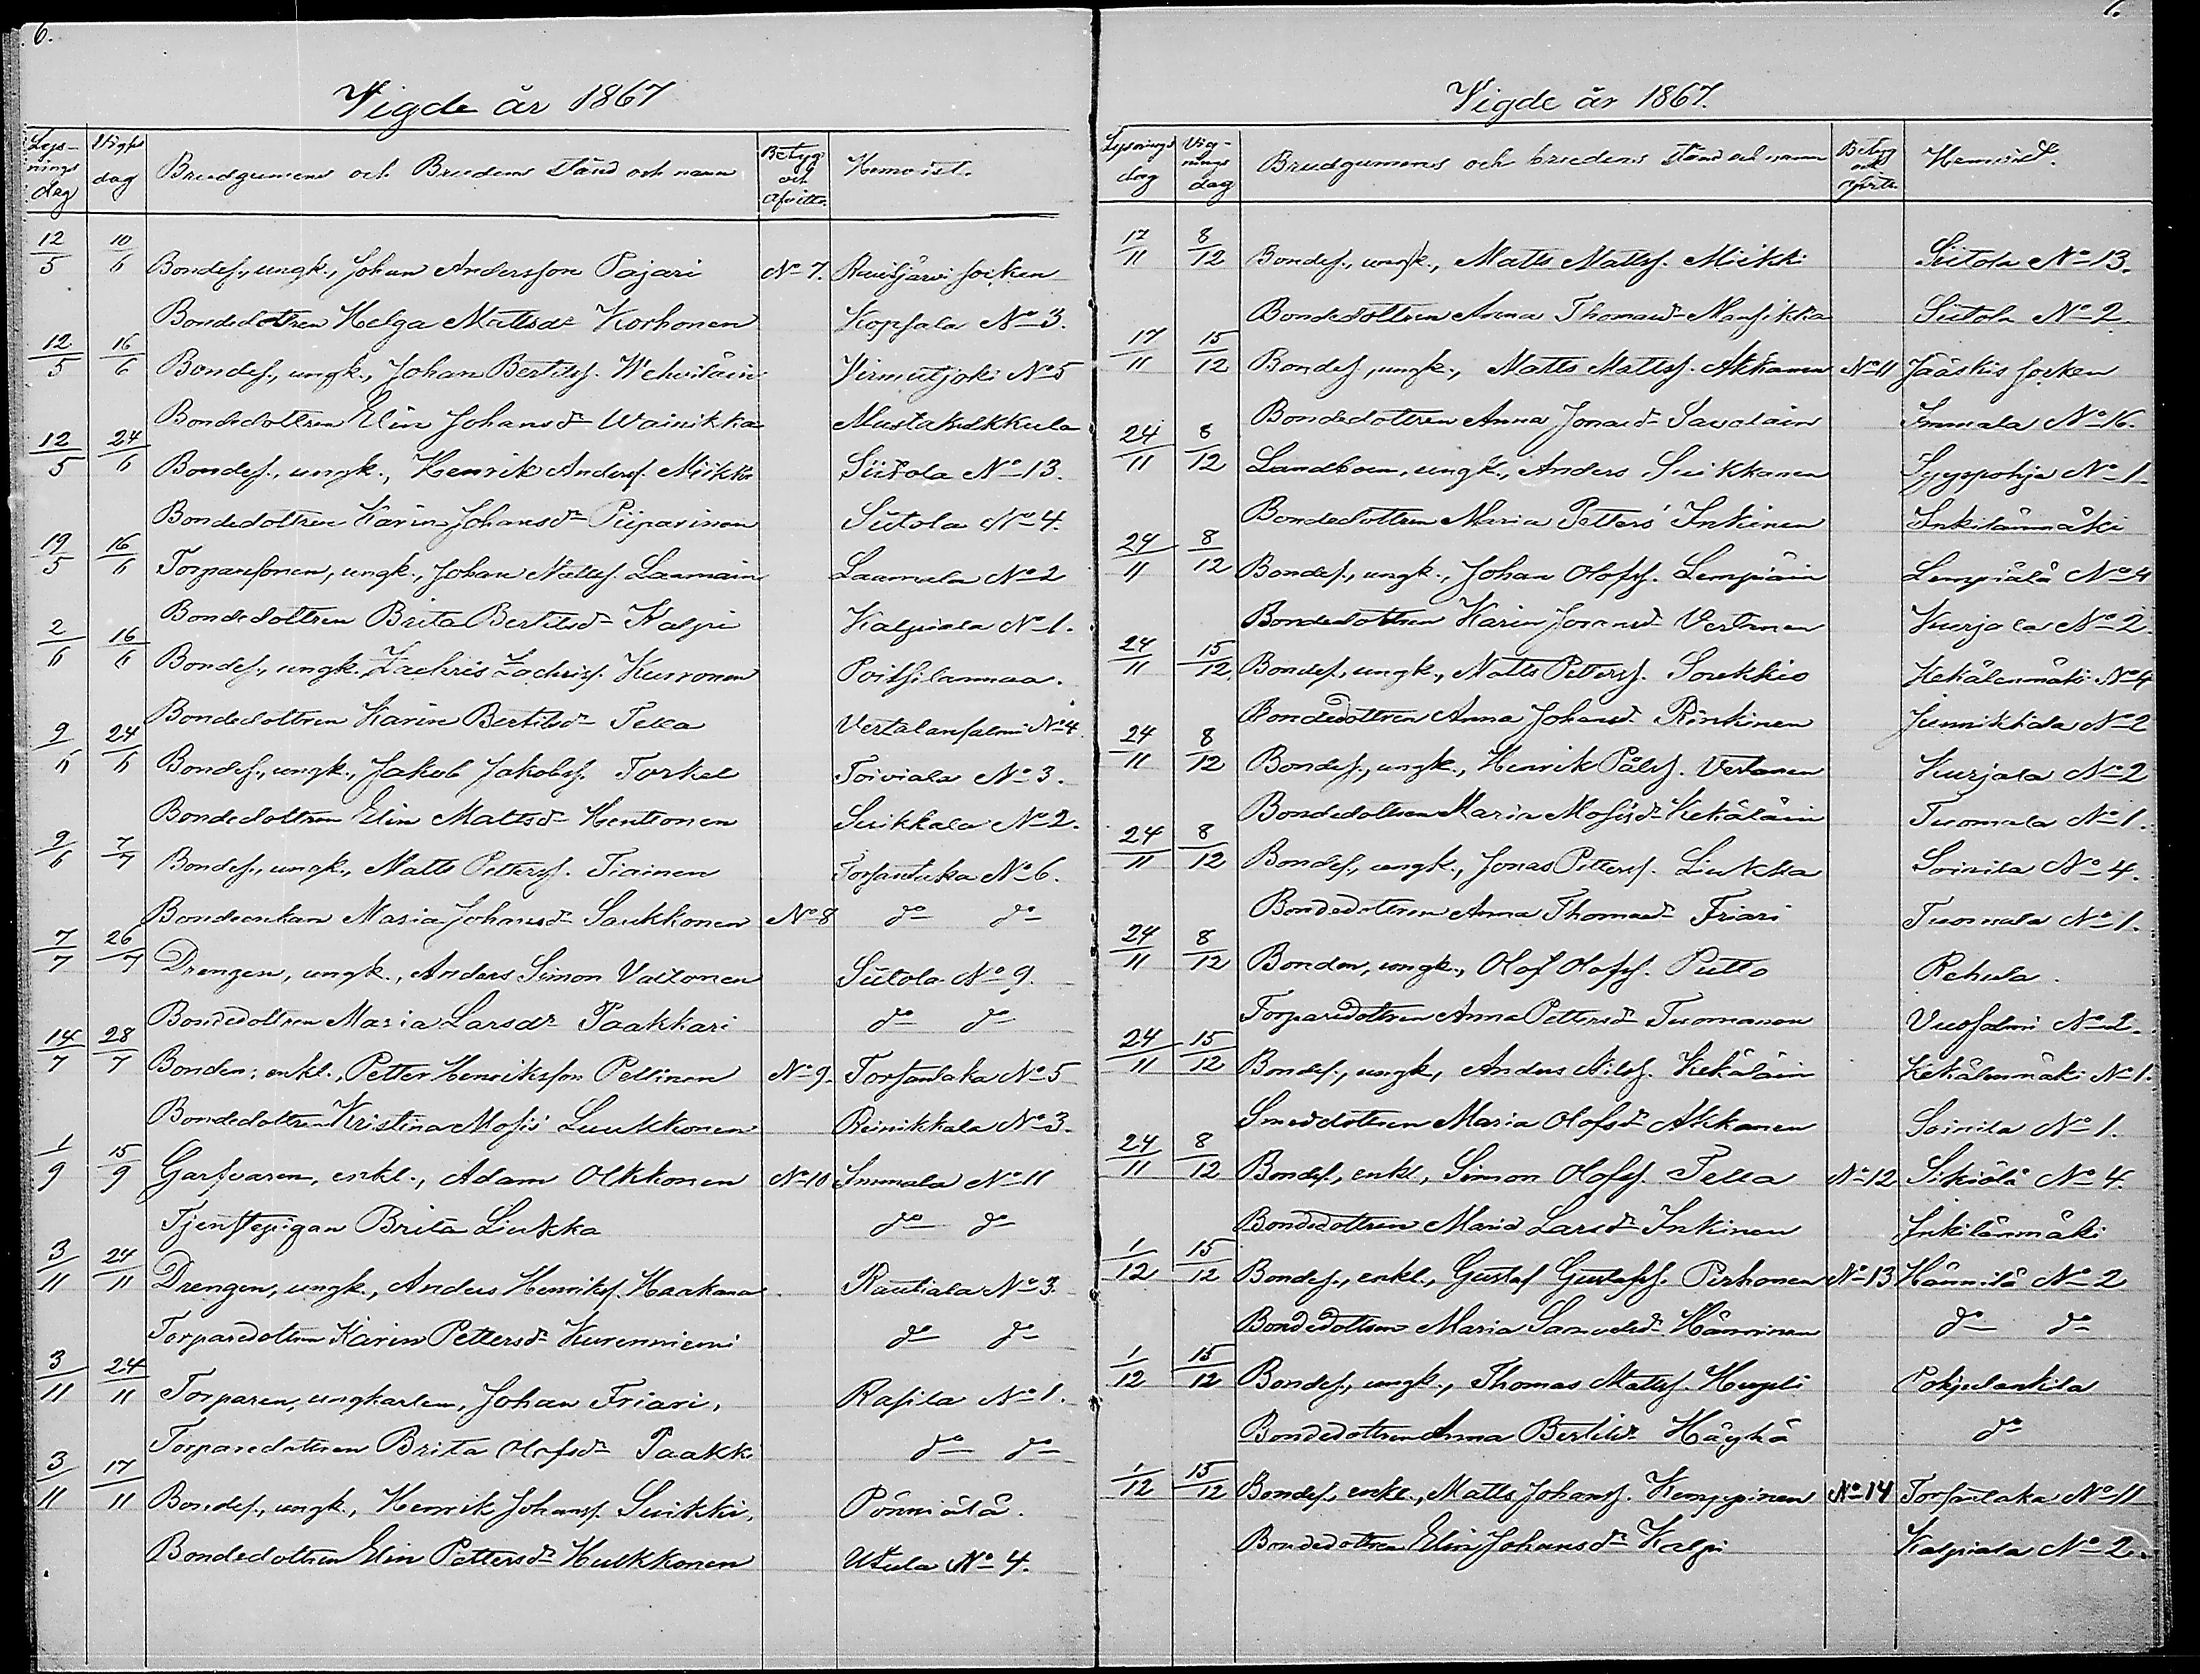 6.
Vigde år 1867
Lysnings dag Vigs dag Brudgummens och Brudens stånd och namn Betyg och Afvittr. Hemvist.
12/5 10/6 Bondes., ungk., Johan Andersson Pajari No 7. Ruisjärvi socken
Bondedottren Helga Mattsdr Korhonen Kopsala No 3.
12/5 16/6 Bondes., ungk., Johan Bertilss. Wehviläin Virmutjoki No 5
Bondedottren Elin Johansdr Wainikka Mustakulkkula
12/5 24/6 Bondes., ungk., Henrik Anderss. Miikki Siitola No 13.
Bondedottren Karin Johansdr Piiparinen Siitola No 4.
19/5 16/6 Torparesonen, ungk., Johan Mattss. Laamain Laamala No 2
Bondedottren Brita Bertilsdr Kalpi Kalpiala No 1.
2/6 16/6 Bondes., ungk. Zachris Zachriss. Kurronen Poitsilanmaa.
Bondedottren Karin Bertilsdr Tella Vertalansalmi No 4.
9/6 24/6 Bondes., ungk., Jakob Jakobss. Torkel Toiviala No 3.
Bondedottren Elin Mattsdr Henttonen Suikkala No 2.
9/6 7/7 Bondes., ungk., Matts Petterss. Tiainen Torsantaka No 6.
Bondeenkan Maria Johansdr Saukkonen No 8 do do
7/7 26/7 Drengen, ungk., Anders Simon Valtonen Siitola No 9.
Bondedottren Maria Larsdr Paakkari do do
14/7 28/7 Bonden, enkl., Petter Henriksson Pellinen No 9. Torsantaka No 5
Bondedottren Kristina Mosis Luukkonen Reinikkala No 3.
1/9 15/9 Garfvaren, enkl., Adam Olkkonen No 10 Immala No 11
Tjenstepigan Brita Liukka do do
3/11 24/11 Drengen, ungk., Anders Henrikss. Haakana Rautiala No 3.
Torparedottren Karin Pettersdr Kurenniemi do do
3/11 24/11 Torparen, ungkarlen, Johan Friari, Rasila No 1.
Torparedottren Brita Olofsdr Paakki do do
3/11 17/11 Bondes., ungk., Henrik Johanss. Suikki, Pönniälä.
Bondedottren Elin Pettersdr Hulkkonen Utula No 4.
Vigde år 1867.
Lysnings dag Vignings dag Brudgummens och brudens stånd och namn Betyg och afvittr. Hemvist.
17/11 8/12 Bondes., ungk., Matts Mattss. Miikki Siitola No 13.
Bondedottren Anna Thomasdr Mansikka Siitola No 2.
17/11 15/12 Bondes., ungk., Matts Mattss. Akkanen No 11 Jääskis socken
Bondedottren Anna Jonasdr Savolain Immala No 16.
24/11 8/12 Landboen, ungk., Anders Suikkanen Syyspohja No 1.
Bondedottren Maria Petters Inkinen Inkilänmäki
24/11 8/12 Bondes., ungk., Johan Olofss. Lempiäin Lempiälä No 4
Bondedottren Karin Jonasdr Vertanen Kurjala No 2.
24/11 15/12 Bondes., ungk., Matts Petterss. Soukkio Kekälenmäki No 4
Bondedottren Anna Johansdr Rinkinen Junnikkala No 2
24/11 8/12 Bondes., ungk., Henrik Pålss. Vertanen Kurjala No 2
Bondedottren Maria Mosisdr Kekäläin Tuomala No 1.
24/11 8/12 Bondes., ungk., Jonas Petterss. Liukka Soinila No 4.
Bondedottren Anna Thomasdr Friari Tuomala No 1.
24/11 8/12 Bonden, ungk., Olof Olofss. Putto Rehula.
Torparedottren Anna Pettersdr Tuomanen Vuosalmi No 2.
24/11 15/12 Bondes., ungk., Anders Nilss. Kekäläin Kekälenmäki No 1.
Smeddottren Maria Olofsdr Akkanen Soinila No 1.
24/11 8/12 Bondes., enkl., Simon Olofss. Tella No 12 Sikiölä No 4.
Bondedottren Maria Larsdr Inkinen Inkilänmäki
1/12 15/12 Bondes., enkl., Gustaf Gustafss. Pirhonen No 13 Hännilä No 2
Bondedottren Maria Samuelsdr Hänninen do do
1/12 15/12 Bondes., ungk., Thomas Mattss. Hupli Pohjalankila
Bondedottren Anna Bertilsdr Häyhä do
1/12 15/12 Bondes., enkl., Matts Johanss. Kemppinen No 14 Torsantaka No 11
Bondedottren Elin Johansdr Kalpi Kalpiala No 2.